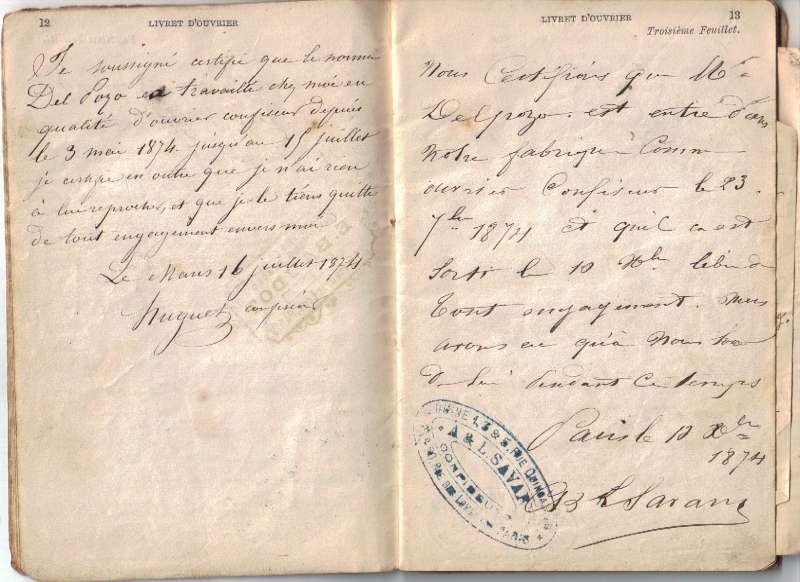 12
LIVRET D'OUVRIER
Je soussigné certifie que le nommé
Del Pozo a travaillé chez moi en
qualité d'ouvrier confiseur depuis
le 3 mai 1874 jusqu'au 15 juillet
je certifie en outre que je n'ai rien
à lui reprocher, et que je le tiens quitte
de tout engagement envers moi
Le Mans 16 juillet 1874
Huguet confiseur
LIVRET D'OUVRIER
13
Troisième Feuillet.
Nous Certifions que Mr
Delpozo est entré dans
Notre fabrique Comme
ouvrier Confiseur le 23
7bre 1874 et qu'il en est
Sorti le 10 libre de
tout engagement. Nous
avons eu qu'à Nous louer
De lui Pendant Ce temps
Paris le 10 Xbre
1874
A & L. SAVA
CONFISEU
PARIS